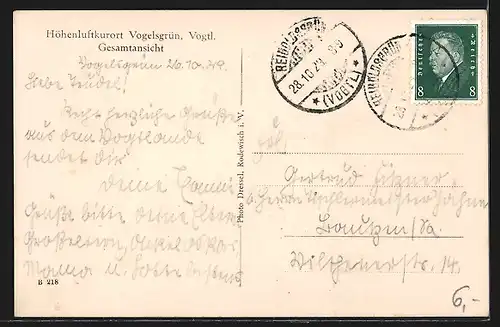 Höhenluftkurort Vogelsgrün, Vogtl.
Gesamtansicht
Vogelsgrün 26.10.29.
Liebe Trudel!
Recht herzliche Grüße
aus dem Vogtlande
sendet dir
deine
Grüße bitte deine Eltern
Großeltern, Onkel
Mama u.
B 218
Photo Dressel, Rodewisch i. V.
REIHOLDSGRÜN
28.10.29
★ (VOGTL) ★
REIHOLDSGRÜN
Deutsches Reich
8 8
Frl.
Gertrud
b. Herrn
Bautzen/Sa.
Wilthenerstr. 14.
6,-